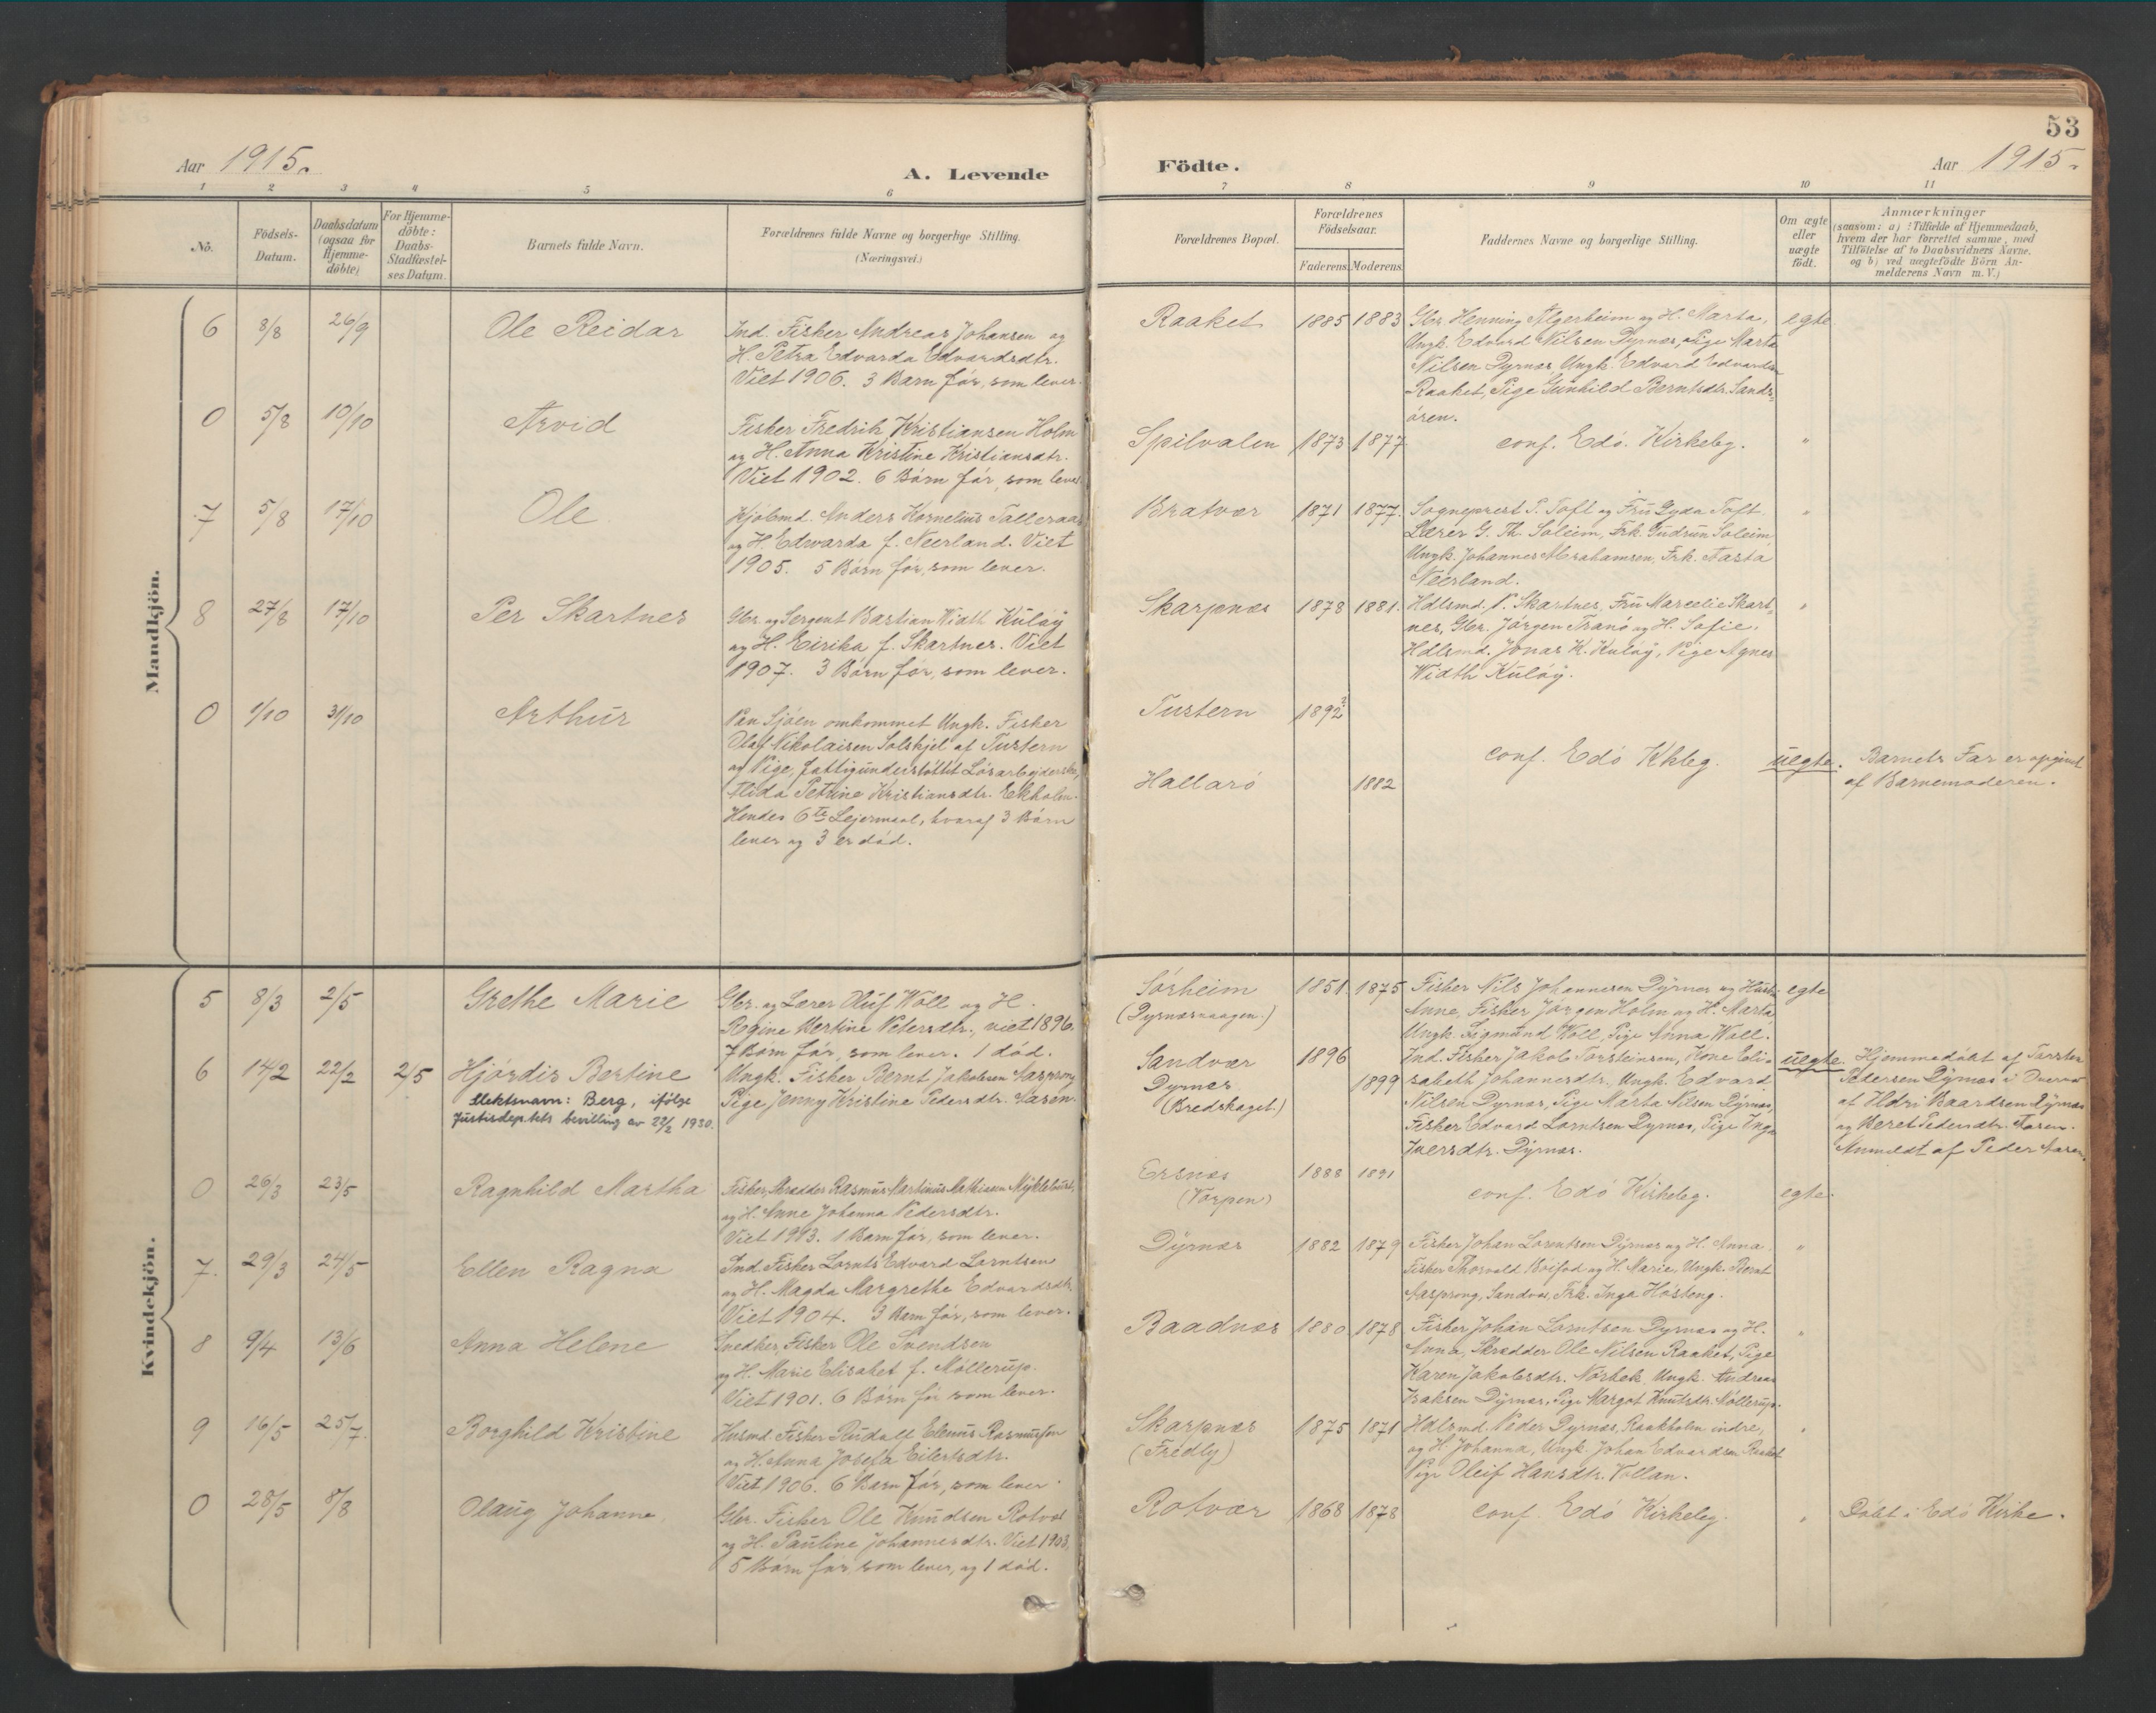 53
Aar 1915.
A. Levende
Födte.
Aar 1915.
1 2 3 4 5 6 7 8 9 10 11
No.
Födsels-
Datum.
Daabsdatum
(ogsaa for
Hjemme-
döbte)
For Hjemme-
döbte:
Daabs-
Stadfæstel-
ses Datum.
Barnets fulde Navn.
Forældrenes fulde Navne og borgerlige Stilling.
(Næringsvei.)
Forældrenes Bopæl.
Forældrenes
Födselsaar.
Faderens. Moderens.
Faddernes Navne og borgerlige Stilling.
Om ægte
eller
uægte
födt.
Anmærkninger
(saasom: a) Tilfælde af Hjemmedaab,
hvem der har forrettet samme, med
Tilföielse af to Daabsvidners Navne.
og b) ved uægtefödte Börn An-
melderens Navn m. V.)
Mandkjön.
6 8/8 26/9 Ole Reidar
Ind. Fisker Andreas Johansen og
H. Petra Edvarda Edvardsdtr.
Viet 1906. 3 Barn før, som lever.
Raaket 1885 1883
Gbr. Henning Algerheim og H. Marta,
Ungk. Edvard Nilsen Dyrnæs, Pige Marta
Nilsen Dyrnæs, Ungk. Edvard Edvardsen
Raaket, Pige Gunhild Berntsdtr. Sands-
ören.
egte
0 5/8 10/10 Arvid
Fisker Fredrik Kristiansen Holm
og H. Anna Kristine Kristiansdtr.
Viet 1902. 6 Börn før, som lever
Spilvalen 1873 1877
conf. Edö. Kirkebg. "
7 5/8 17/10 Ole
Kjøbmd. Anders Kornelius Talleraas
og H. Edvarda f. Neerland. Viet
1905. 5 Børn før, som lever.
Bratvær 1871 1877.
Sogneprest P. Toft og Fru Gyda Toft.
Lærer G. Th. Soleim, Frk. Gudrun Soleim
Ungk. Johannes Abrahamsen, Frk. Aasta
Neerland.
"
8 27/8 17/10 Per Skartnes
Gbr. og Sergent Bastian Width Kuløy
og H. Eirika f. Skartnes. Viet
1907. 3 Børn før, som lever.
Skarpnæs 1878 1881.
Hdlsmd. P. Skartnes, Fru Marselie Skart-
nes, Gbr. Jørgen Tranø og H. Sofie.
Hdlsmd. Jonas W. Kuløy, Pige Agnes
Width Kuløy.
"
0 1/10 31/10 Arthur
Paa Sjøen omkommet Ungk. Fisker
Olaf Nikolaisen Solskjel af Tustern
og Pige, fattigunderstøttet Løsarbejderske,
Alida Petrine Kristiansdtr. Ekholm.
Hendes 6te Lejermaal, hvoraf 3 Børn
lever og 3 er død.
Tustern 1892?
Hallarø 1882
conf. Edö Khbg. uegte.
Barnets Far er opgivet
af Barnemoderen.
Kvindekjön.
5 8/3 2/5 Grethe Marie
Gbr. og Lærer Oluf Woll og H.
Regine Bertine Petersdtr., viet 1896.
7 Børn før, som lever. 1 død.
Sørheim
(Dyrnæsvaagen.)
1851 1875
Fisker Nils Johannesen Dyrnes og Hustr.
Anne, Fisker Jørgen Holm og H. Marta
Ungk. Sigmund Woll, Pige Anna Woll.
egte
6 14/2 22/2 2/5 Hjørdis Bertine
Slektsnavn: Berg, ifølge
Justisdeptets bevilling av 22/2 1930.
Ungk. Fisker Bernt Jakobsen Aasprong
Pige Jenny Kristine Pedersdtr. Aasen.
Sandvær
Dyrnæs
(Bredskaget.)
1896
1899
Ind. Fisker Jakob Torsteinsen, Kone Eli-
sabeth Johannesdtr. Ungk. Edvard
Nilsen Dyrnæs, Pige Marta Nilsen Dyrnæs,
Fisker Edvard Lorntsen Dyrnæs, Pige Inga
Iversdtr. Dyrnæs.
uegte.
Hjemmedøbt af Torster
Pedersen Dyrnæs i Overvær
af Hdri Baardsen Dyrnæs
og Beret Pedersdtr. Aasen.
Anmeldt af Peder Aasen.
0 26/3 23/5 Ragnhild Martha
Fisker, Skrædder Rasmus Martinus Mathisen Myklebust,
og H. Anne Johanna Pedersdtr.
Viet 1913. 1 Barn før, som lever.
Ersnæs
(Vorpen)
1888 1891
conf. Edö Kirkebg. egte.
7. 29/3 24/5 Ellen Ragna
Ind. Fisker Lornts Edvard Lorntsen
og H. Magda Margrethe Edvardsdtr.
Viet 1904. 3 Barn før, som lever.
Dyrnæs 1882 1879
Fisker Johan Lorentsen Dyrnæs og H. Anna.
Fisker Thorvald Roifod og H. Marie, Ungk. Bernt
Aasprong, Sandvær, Frk. Inga Høsteng.
"
8 9/4 13/6 Anna Helene
Snedker, Fisker Ole Svendsen
og H. Marie Elisabet f. Møllerup.
Viet 1901. 6 Børn før som lever.
Baadnes 1880 1878
Fisker Johan Lorntsen Dyrnæs og H.
Anna, Skrædder Ole Nilsen Raaket, Pige
Karen Jakobsdtr. Norbek, Ungk. Andreas
Isaksen Dyrnæs, Pige Margot Knutsdtr. Møllerup.
"
9 16/5 25/7 Borghild Kristine
Husmd. Fisker Rudolf Elenus Rasmussen
og H. Anna Josefa Eilertsdtr.
Viet 1906. 6 Barn før, som lever.
Skarpnæs
(Fredly)
1875 1871
Hdlsmd. Peder Dyrnæs, Raakholm indre,
og H. Johanna, Ungk. Johan Edvardsen Raaket
Pige Oleif Hansdtr. Vollan.
"
0 28/5 8/8 Olaug Johanna,
Gbr. Fisker Ole Knudsen Rotvær
og H. Pauline Johannesdtr. Viet 1903.
5 Børn før, som lever, og 1 død.
Rotvær 1868 1878
conf. Edö Kirkebg. "
Døbt i Edö Kirke.